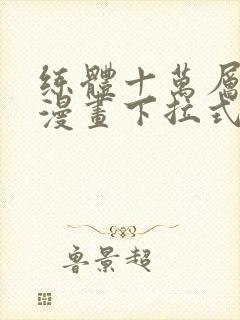 练體十萬層
漫畫下拉式
魯景超